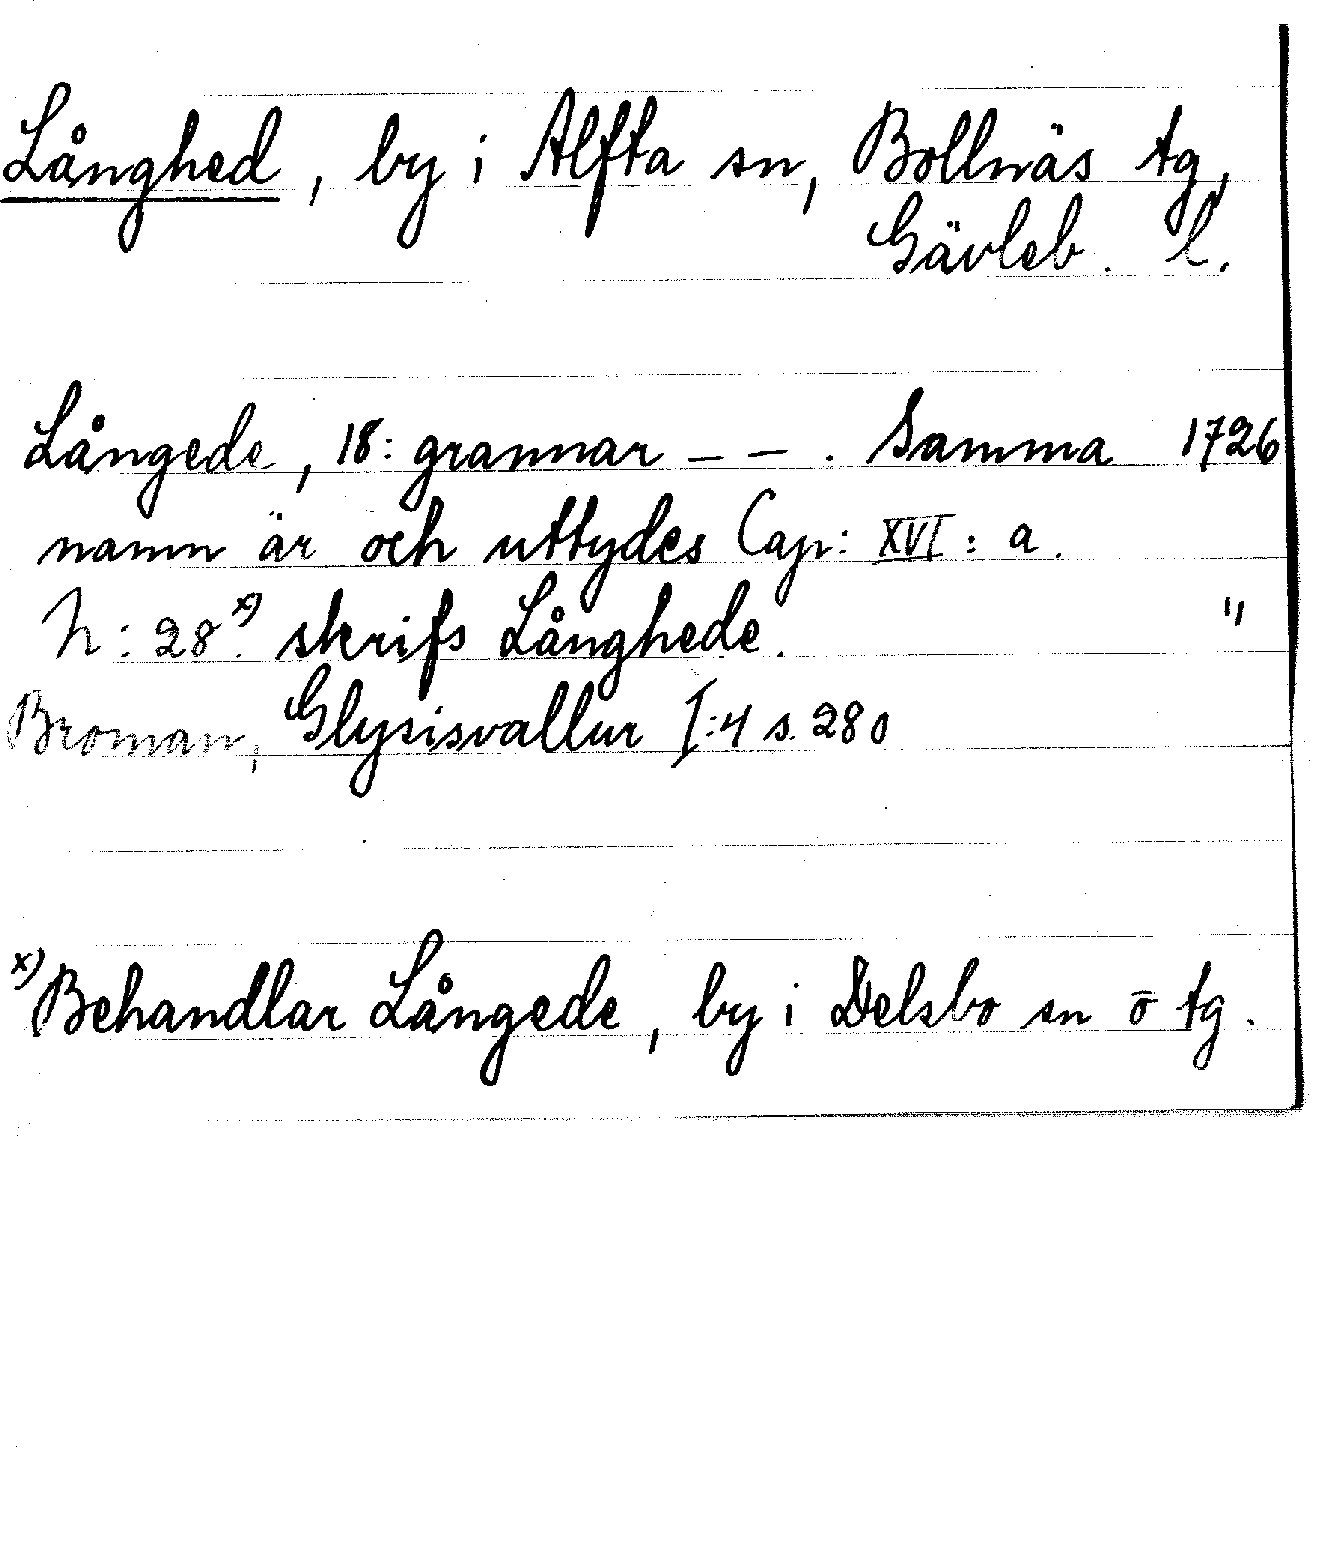 Långhed, by i Alfta sn, Bollnäs tg,
Gävleb. l.
Långede, 18: grannar – – . Samma 1726
namn är och uttydes Cap: XVI: a.
N: 28.x) skrifs Långhede. "
Broman, Glysisvallur I:4 s. 280
x) Behandlar Långede, by i Delsbo sn o tg.